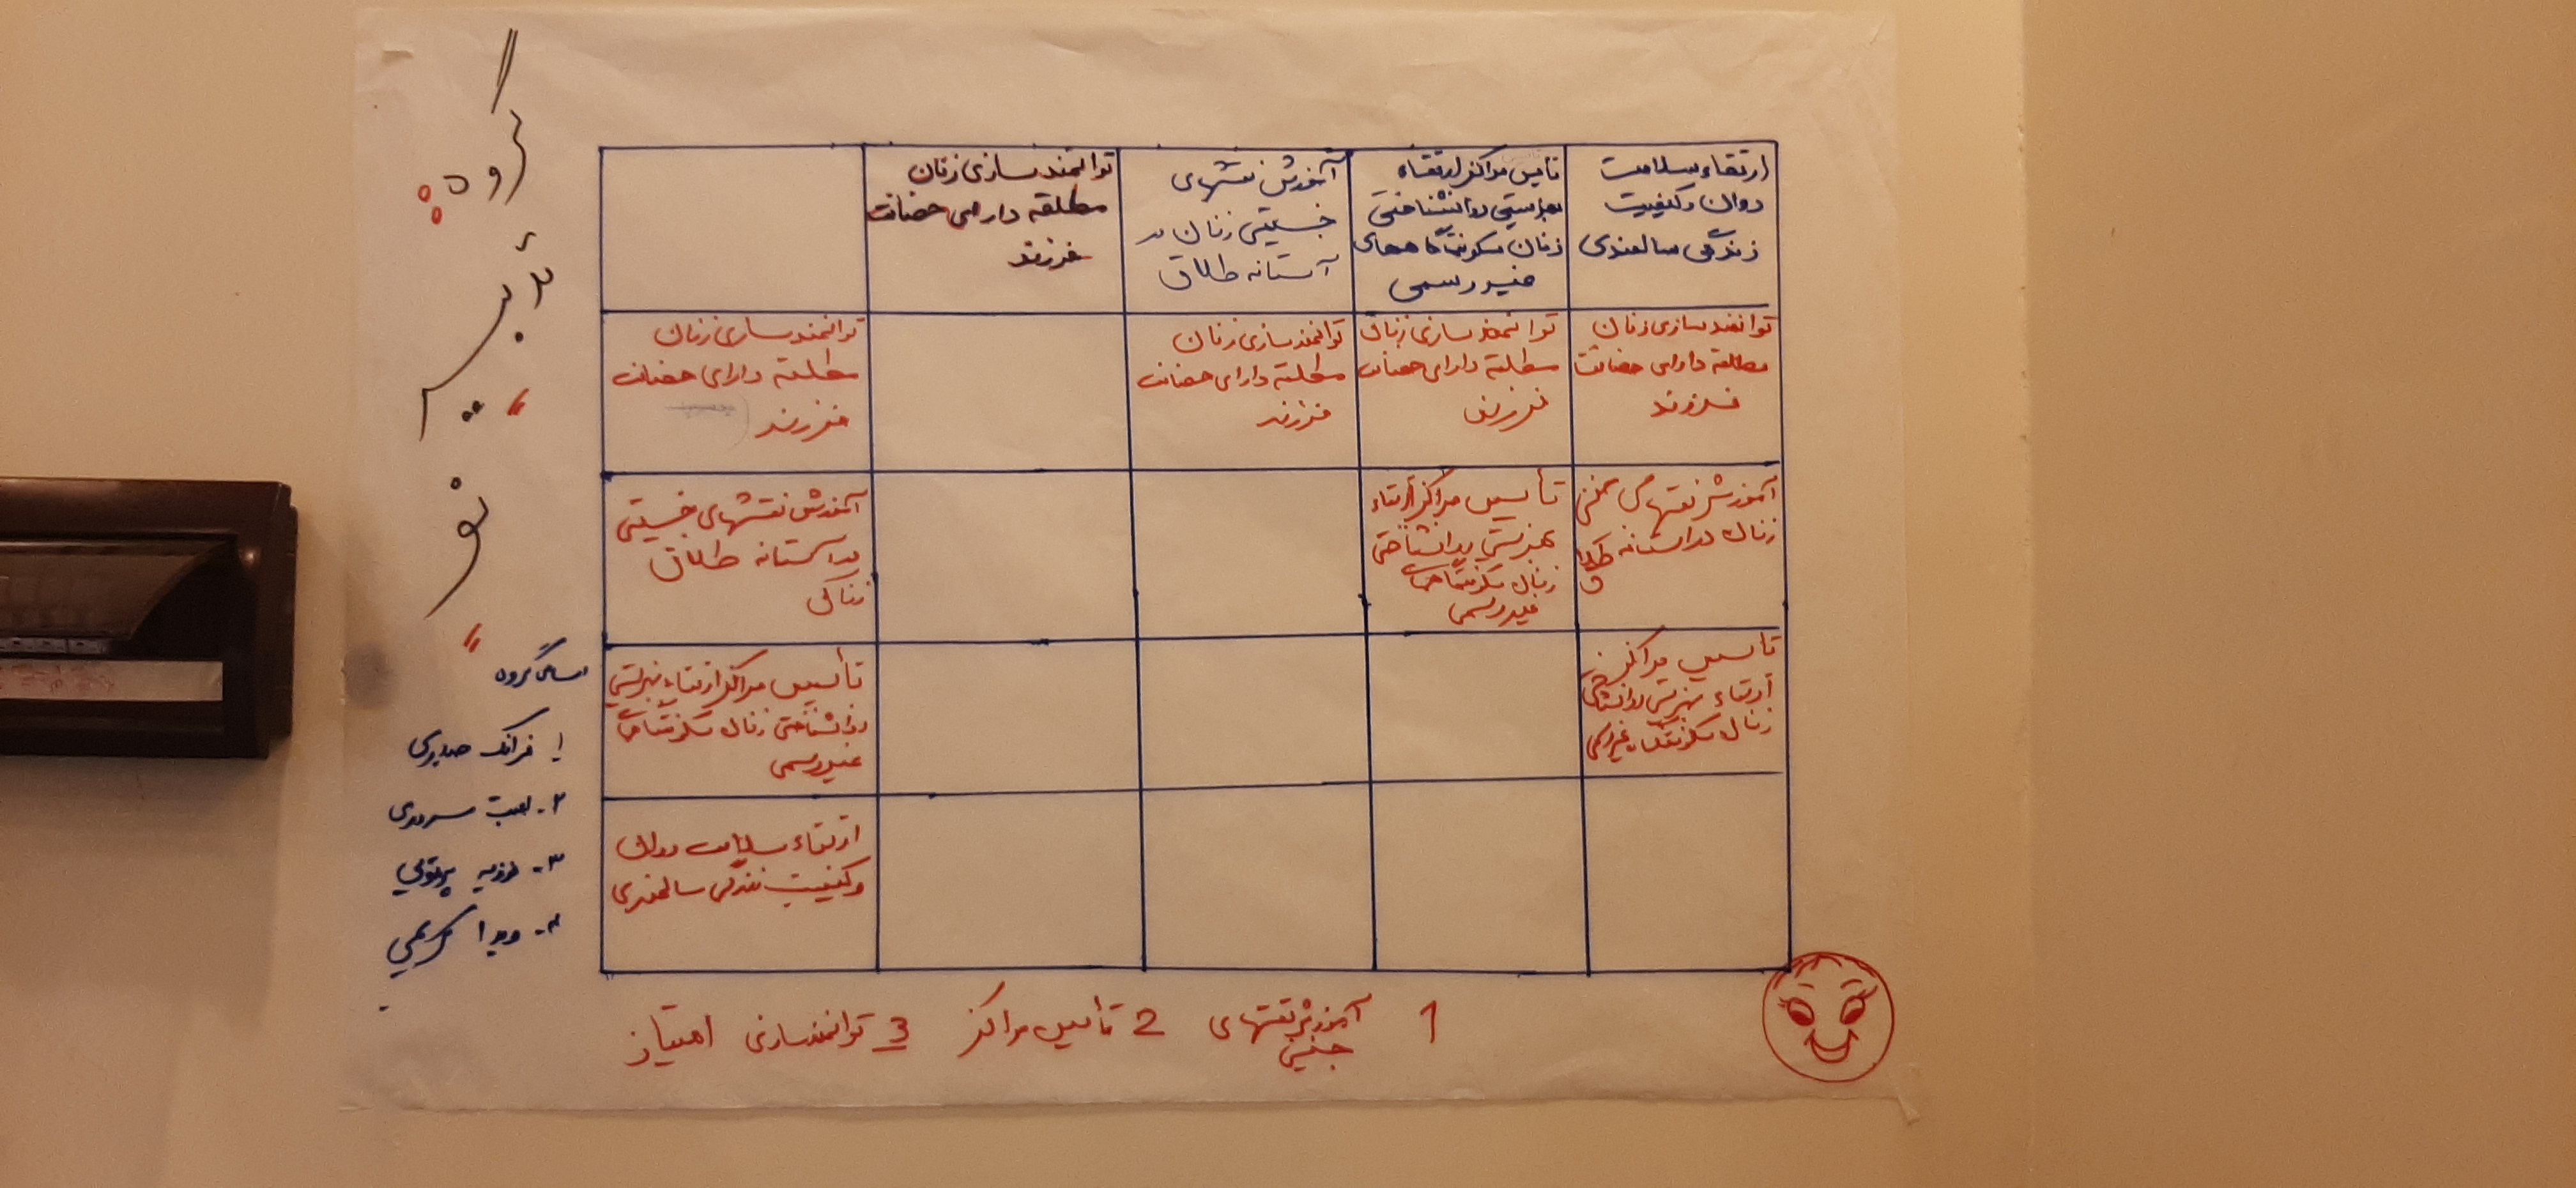 گروه:
"تدبیر
نو"
اسامی گروه
۱. فرانک صدری
۲. سروری
۳. پرتویی
۴. ویدا کریمی
ارتقاء سلامت
روان و کیفیت
زندگی سالمندی
تاسیس مراکز ارتقاء
بهزیستی روانشناختی
زنان سکونتگاههای
غیر رسمی
آموزش نقشهای
جنسیتی زنان در
آستانه طلاق
توانمندسازی زنان
مطلقه دارای حضانت
فرزند
توانمندسازی زنان
مطلقه دارای حضانت
فرزند
توانمندسازی زنان
مطلقه دارای حضانت
فرزند
توانمندسازی زنان
مطلقه دارای حضانت
فرزند
توانمندسازی زنان
مطلقه دارای حضانت
فرزند
آموزش نقشهای جنسی
زنان در استانه طلاق
تأسیس مراکز ارتقاء
بهزیستی روانشناختی
زنان سکونتگاههای
غیر رسمی
آموزش نقشهای جنسیتی
در آستانه طلاق
زنان
تاسیس مراکز
ارتقاء بهزیستی روانشناختی
زنان سکونتگاه غیررسمی
تأسیس مراکز ارتقاء بهزیستی
روانشناختی زنان سکونتگاههای
غیررسمی
ارتقاء سلامت روان
و کیفیت زندگی سالمندی
1 آموزش نقشهای جنسیتی 2 تأسیس مراکز 3 توانمندسازی امتیاز